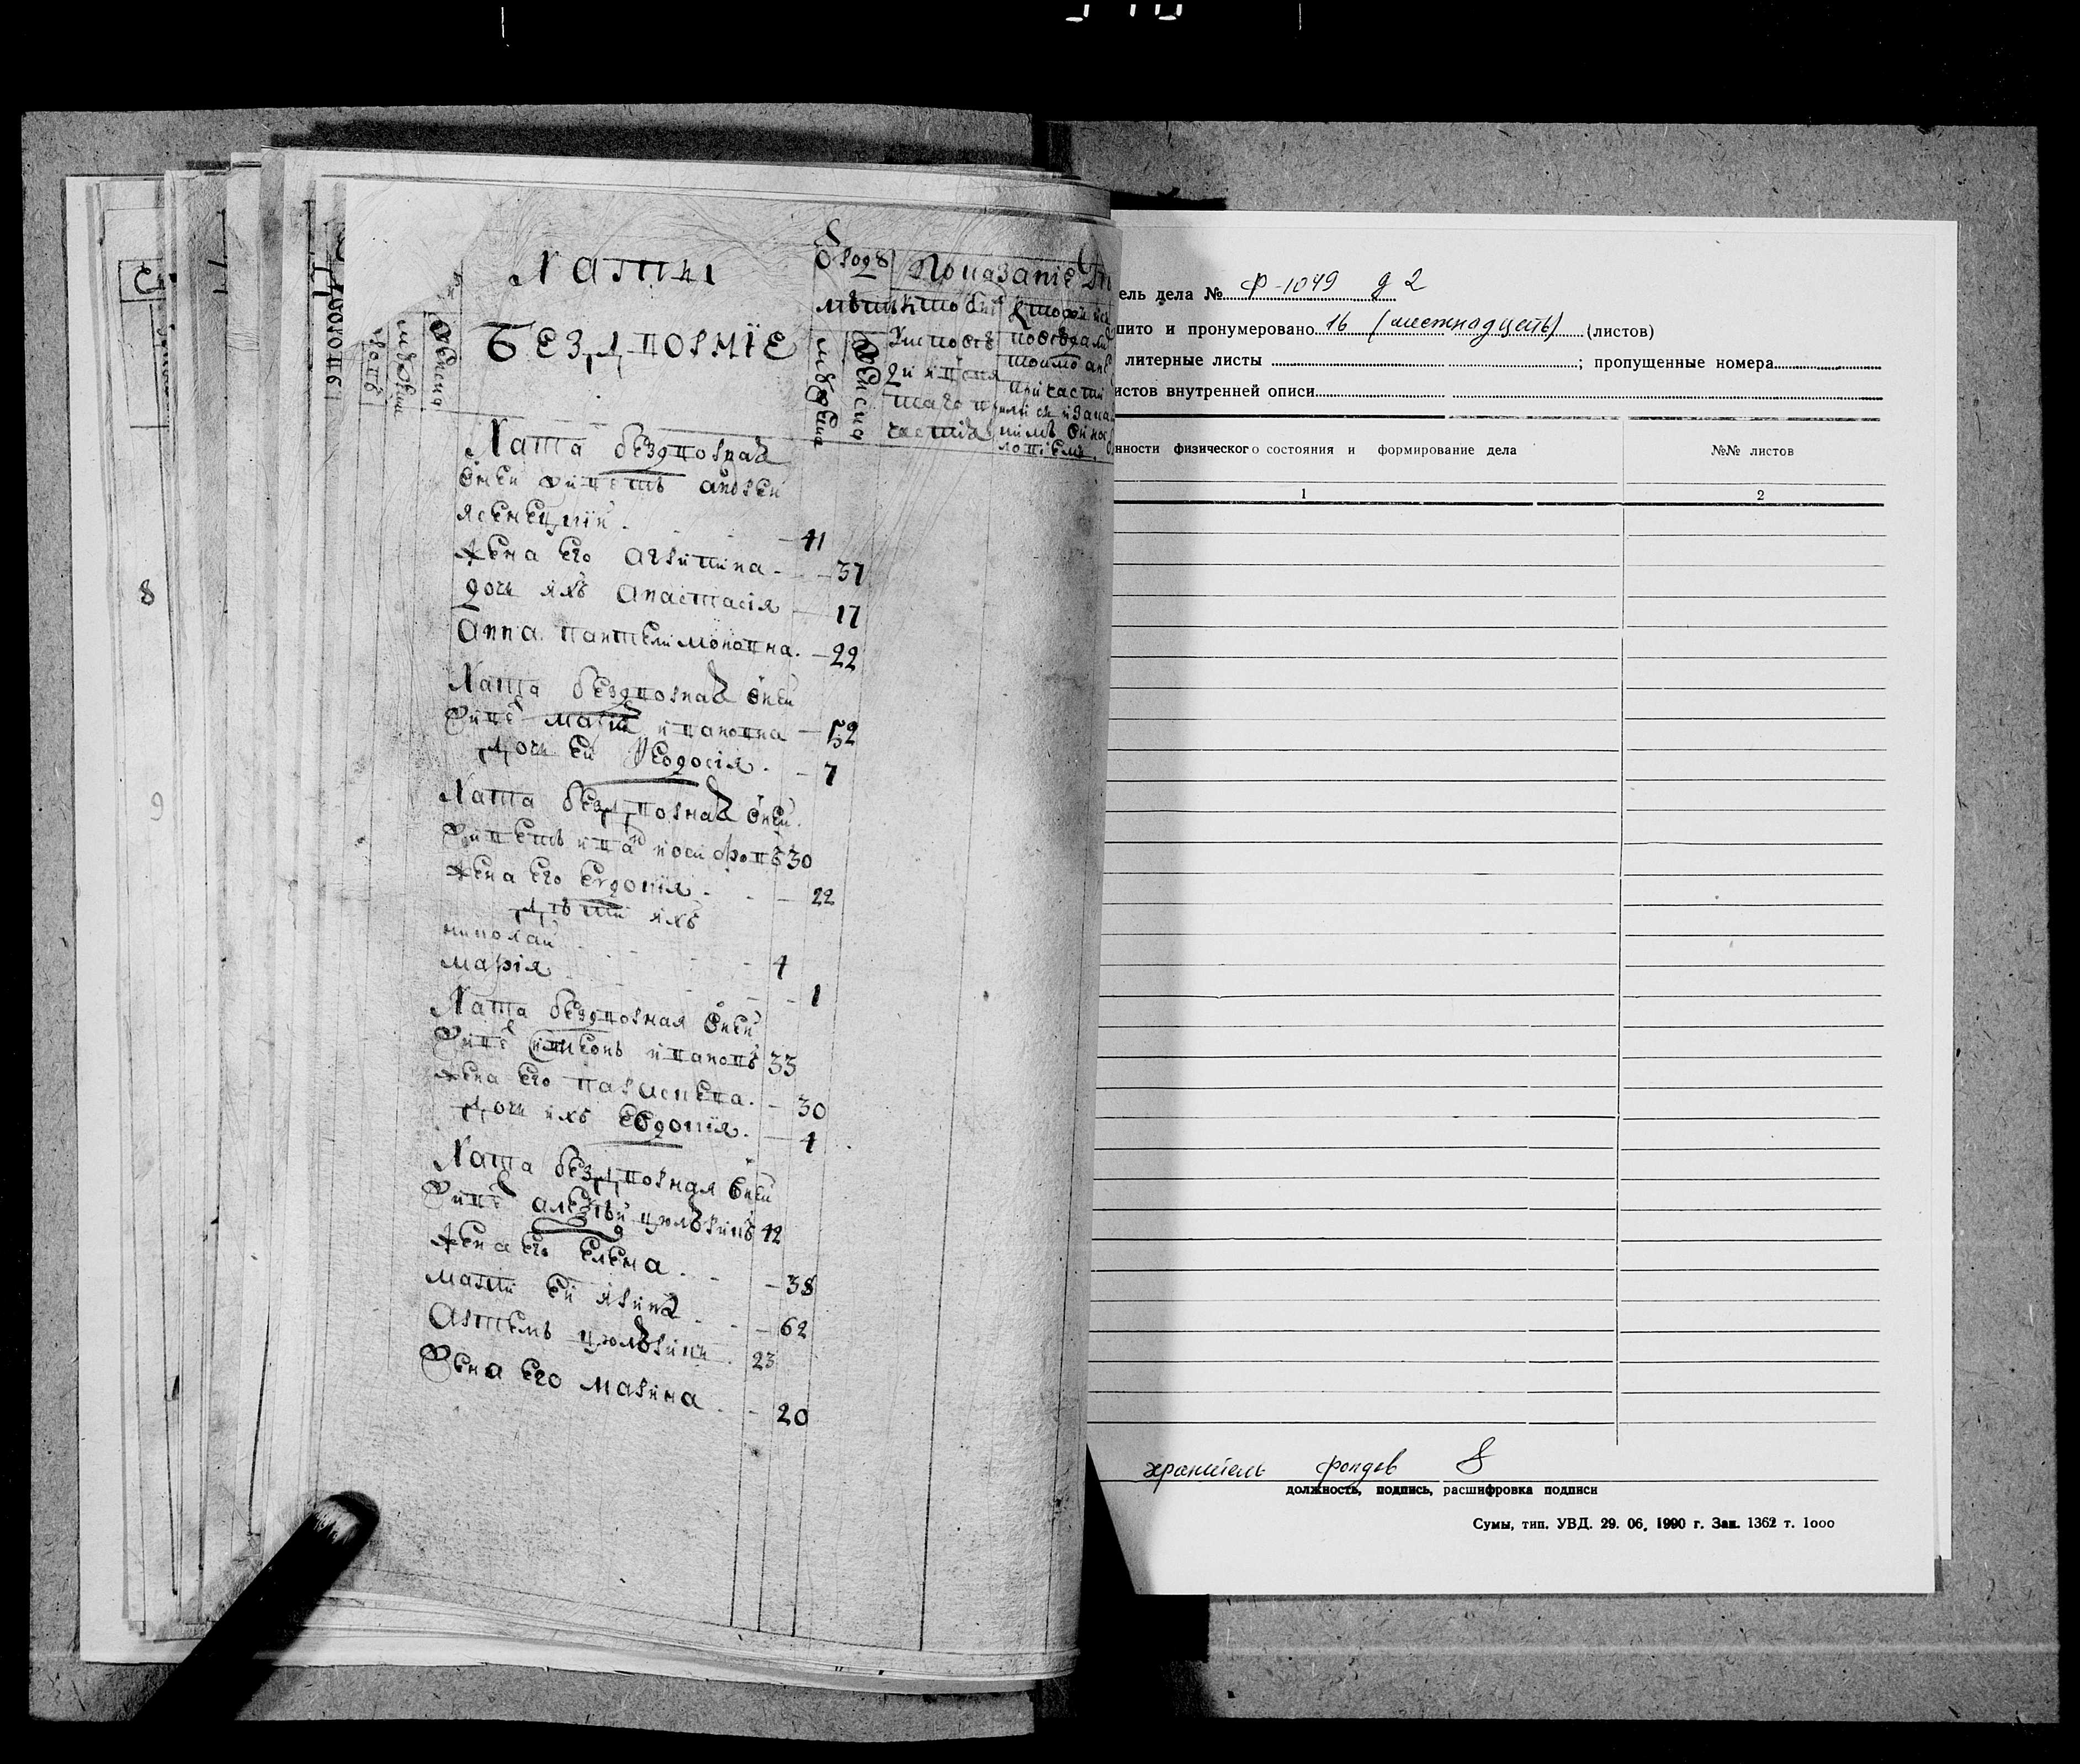 Хаты
Бездворніе
Хата бездворная
Оней живетъ андрей
ясенецкій 41
Жена его агрипина 37
дочь ихъ анастасія 17
Анна пантелимоновна 22
Хата бездворная Оней
живе марія ивановна 52
Дочь ей Феодосія 7
Хата бездворная Оней
живетъ иванъ иосифовъ 30
жена его евдокія 22
Дѣти ихъ
николай 4
марія 1
Хата бездворная Оней
живе симеонъ ивановъ 33
жена его параскева 30
Дочь ихъ евдокія 4
Хата бездворная Оней
живе алексѣй цюлюринъ 42
жена его елена 38
мати ей ирина 62
Артемъ цюлюрикъ 23
Жена его марина 20
8
9
дела № Ф-1049 д 2
и пронумеровано 16 (шестнадцать) (листов)
литерные листы ; пропущенные номера
листов внутренней описи
физического состояния и формирование дела №№ листов
1 2
хранитель фондов
должность, подпись, расшифровка подписи
Сумы, тип. УВД. 29. 06. 1990 г. Зак. 1362 т. 1000